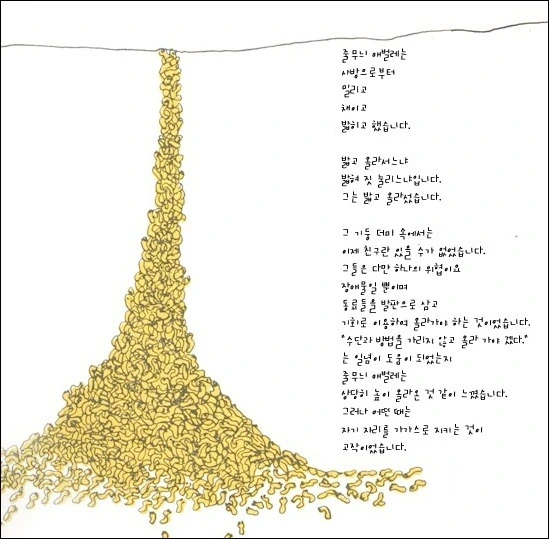 줄무늬 애벌레는
사방으로부터
밀리고
채이고
밟히고 했습니다.
밟고 올라서느냐
밟혀 짓 눌리느냐입니다.
그는 밟고 올라섰습니다.
그 기둥 더미 속에서는
이제 친구란 있을 수가 없었습니다.
그들은 다만 하나의 위협이요
장애물일 뿐이며
동료들을 발판으로 삼고
기회로 이용하여 올라가야 하는 것이었습니다.
"수단과 방법을 가리지 않고 올라 가야 겠다."
는 일념이 도움이 되었는지
줄무늬 애벌레는
상당히 높이 올라온 것 같이 느꼈습니다.
그러나 어떤 때는
자기 자리를 가가스로 지키는 것이
고작이었습니다.